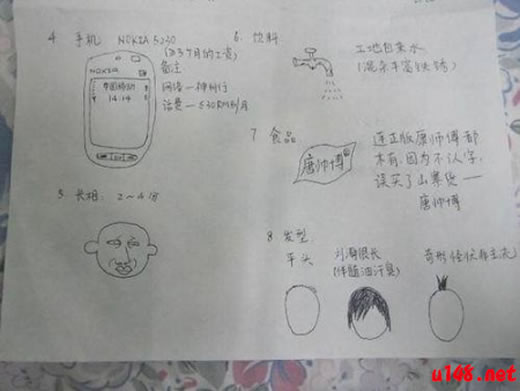 4 手机 NOKIA 5230
(2~3个月的工资)
备注
网络—神州行
话费—≤30RMB/月
NOKIA
中国移动
14:14
5. 长相: 2~4分
6. 饮料
工地自来水
(混杂丰富铁锈)
7 食品
康帅博
连正版康师傅都
木有,因为不认字,
误买了山寨货——
康帅博
8 发型
平头
刘海很长
(伴随油汗臭)
奇形怪状非主流
u148.net